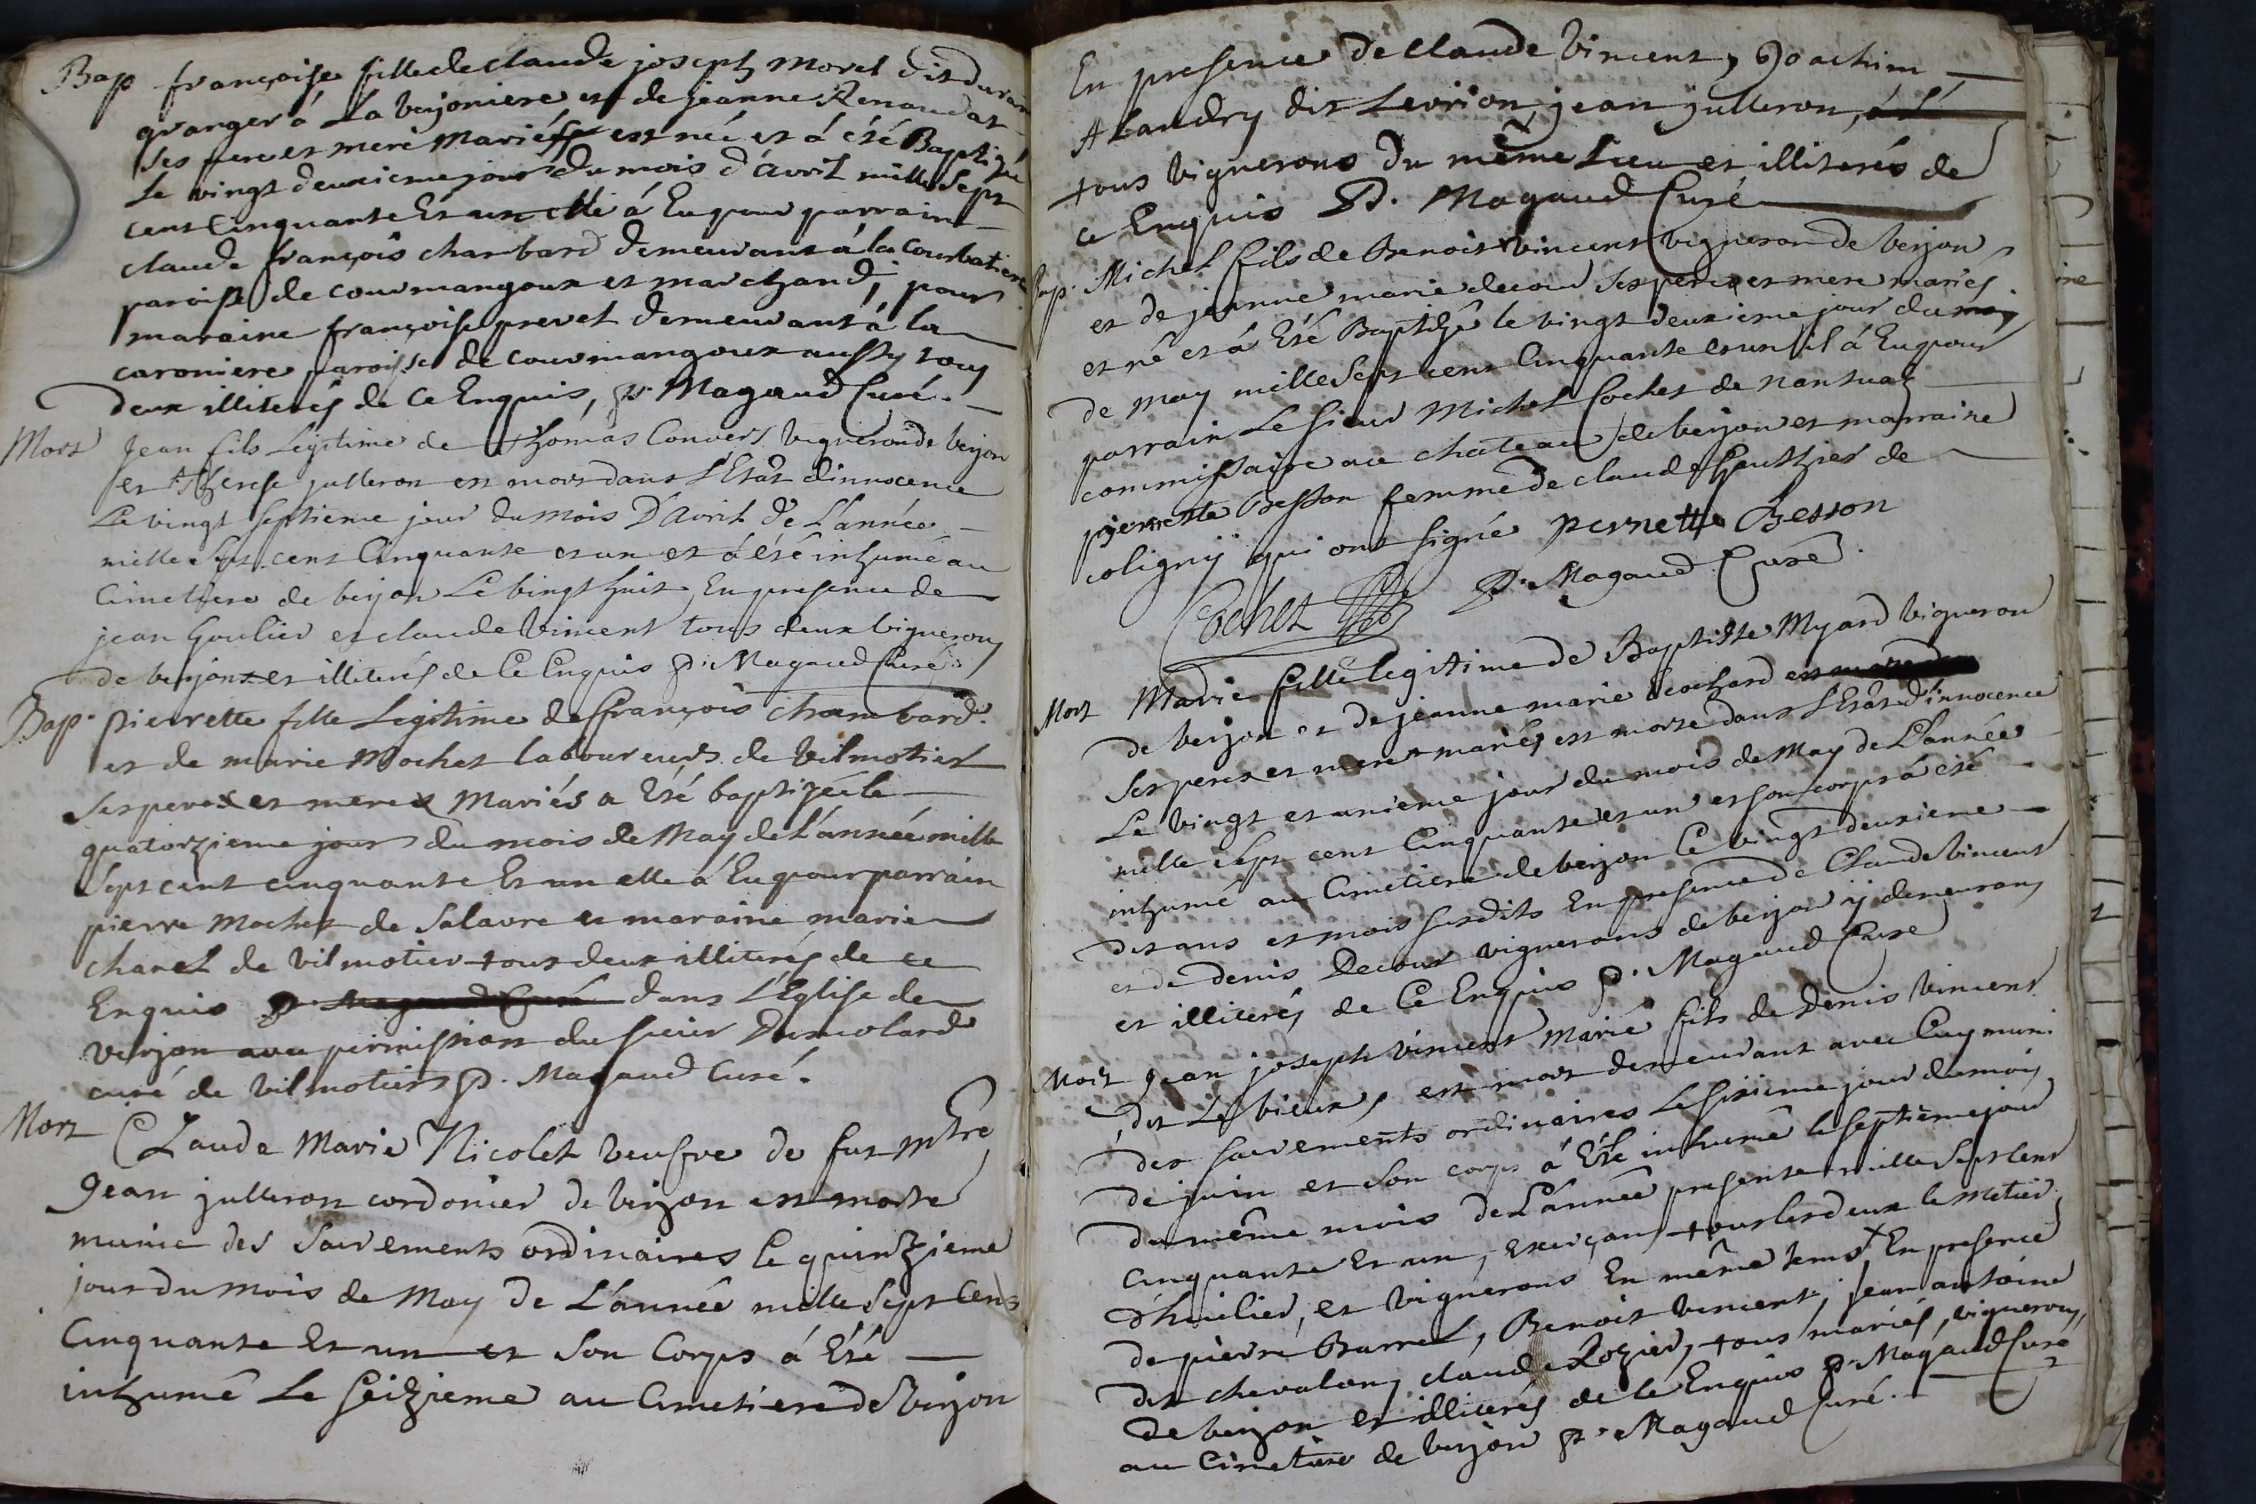 Bap françoise fille de claude joseph morel dit duran
granger á La verjoniere et de jeanne Renaudat
ses pere et mere Mariés est née et á été Baptizée
Le vingt deuxieme jour du mois d'avril mille sept
cent Cinquante Et un elle á Eu pour parrain
claude françois chambard demeurant á la Courbatiere
paroisse de courmangoux et marchand, pour
maraine françoise prevel demeurant á la
caroniere paroisse de courmangoux aussy tous
deux illiterés de Ce Enquis, P. Magaud Curé.
Mort Jean fils Legitime de Thomas Convers vigneron de verjon
et Therese julleron est mort dans L'Etat d'innocence
Le vingt septieme jour du mois D'avril de L'année
mille sept cent Cinquante et un et á été inhumé au
Cimetiere de verjon Le vingt huit, En presence de
jean Goulier et claude Vincent tous deux vignerons
de verjon et illiterés de Ce Enquis P. Magaud Curé.
Bap. pierrette fille Legitime de françois chambard
et de marie Mochet laboureurs de Vilmotier
Ses pere et mere Mariés a Eté baptizée le
quatorzieme jour du mois de May de L'année mille
Sept cent cinquante Et un elle á Eu pour parrain
pierre Mochet de Salavre et maraine marie
charel de Vilmotier tous deux illiterés de ce
Enquis P. Magaud Curé dans L'Eglise de
verjon avec permission du sieur Dumolard
curé de Vilmotier P. Magaud Curé.
Mort Claude Marie Nicolet Veufve de fut Mtre
Jean julleron cordonier de Verjon est morte
munie des Sacrements ordinaires Le quinzieme
jour du Mois de May de L'année mille Sept Cens
Cinquante Et un et Son Corps á Eté
inhumé Le Seizieme au Cimetiere de Verjon
En presence de Claude Vincent, Joachim
Alandry dit Levrion, jean julleron,
tous Vignerons du même Lieu et illiterés de
ce Enquis P. Magaud Curé
Bap. Michel fils de Benoit Vincent vigneron de verjon
et de jeanne marie decour Ses pere et mere mariés
et né et á Eté Baptizé le vingt deuxieme jour du mois
de may mille Sept cent Cinquante et un il á Eu pour
parrain Le sieur Michel Cochet de nantuaz
commissaire au chateau de verjon et marraine
pierrette Besson femme de claude Gauthier de
coligny qui ont signé pernette Besson
Cochet P. Magaud Curé.
Mort Marie fille legitime de Baptiste Myard Vigneron
de verjon et de jeanne marie
Ses pere et mere mariés est morte dans L'Etat d'innocence
Le vingt et unieme jour du mois de May de L'année
mille Sept cent Cinquante et un et son corps á été
inhumé au Cimetiere de verjon Le vingt deuxieme
des ans et mois susdits En presence de Claude Vincent
et de denis Decour vignerons de verjon ij demeurans
et illiterés de Ce Enquis P. Magaud Curé
Mort Jean joseph Vincent Marié fils de Denis Vincent
dit Le vieux, est mort demeurant avec Luy muni
des sacrements ordinaires Le sixieme jour du mois
de juin et Son corps á Eté inhumé le septieme jour
du même mois de L'année presente mille Sept Cent
Cinquante Et un, exerçans tous les deux le metier
d'huilier, et vignerons En même tems + En presence
de pierre Barrel, Benoit Vincent, jean antoine
dit chevalon, claude Rozier, tous mariés, vignerons,
de verjon et illiterés de Ce Enquis P. Magaud Curé
au Cimetiere de verjon P. Magaud Curé.